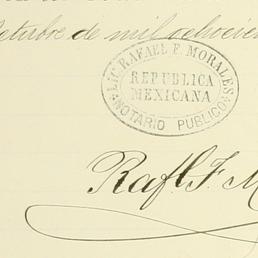 octubre de mil ochocien
LIC. RAFAEL F. MORALES
REPUBLICA
MEXICANA
NOTARIO PUBLICO
Rafl. F. M